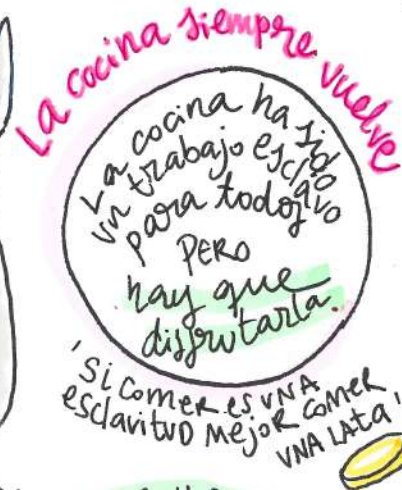 La cocina siempre vuelve
La cocina ha sido
un trabajo esclavo
para todos
PERO
hay que
disfrutarla.
'Si comer es UNA
esclavitUD Mejor comer
UNA LAta'